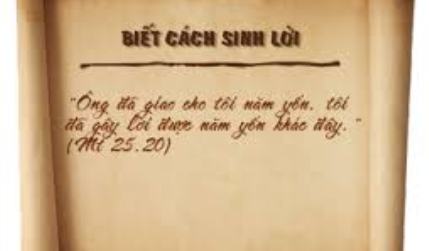 BIẾT CÁCH SINH LỜI
"Ông đã giao cho tôi năm yến, tôi
đã gây lời được năm yến khác đây."
(Mt 25,20)